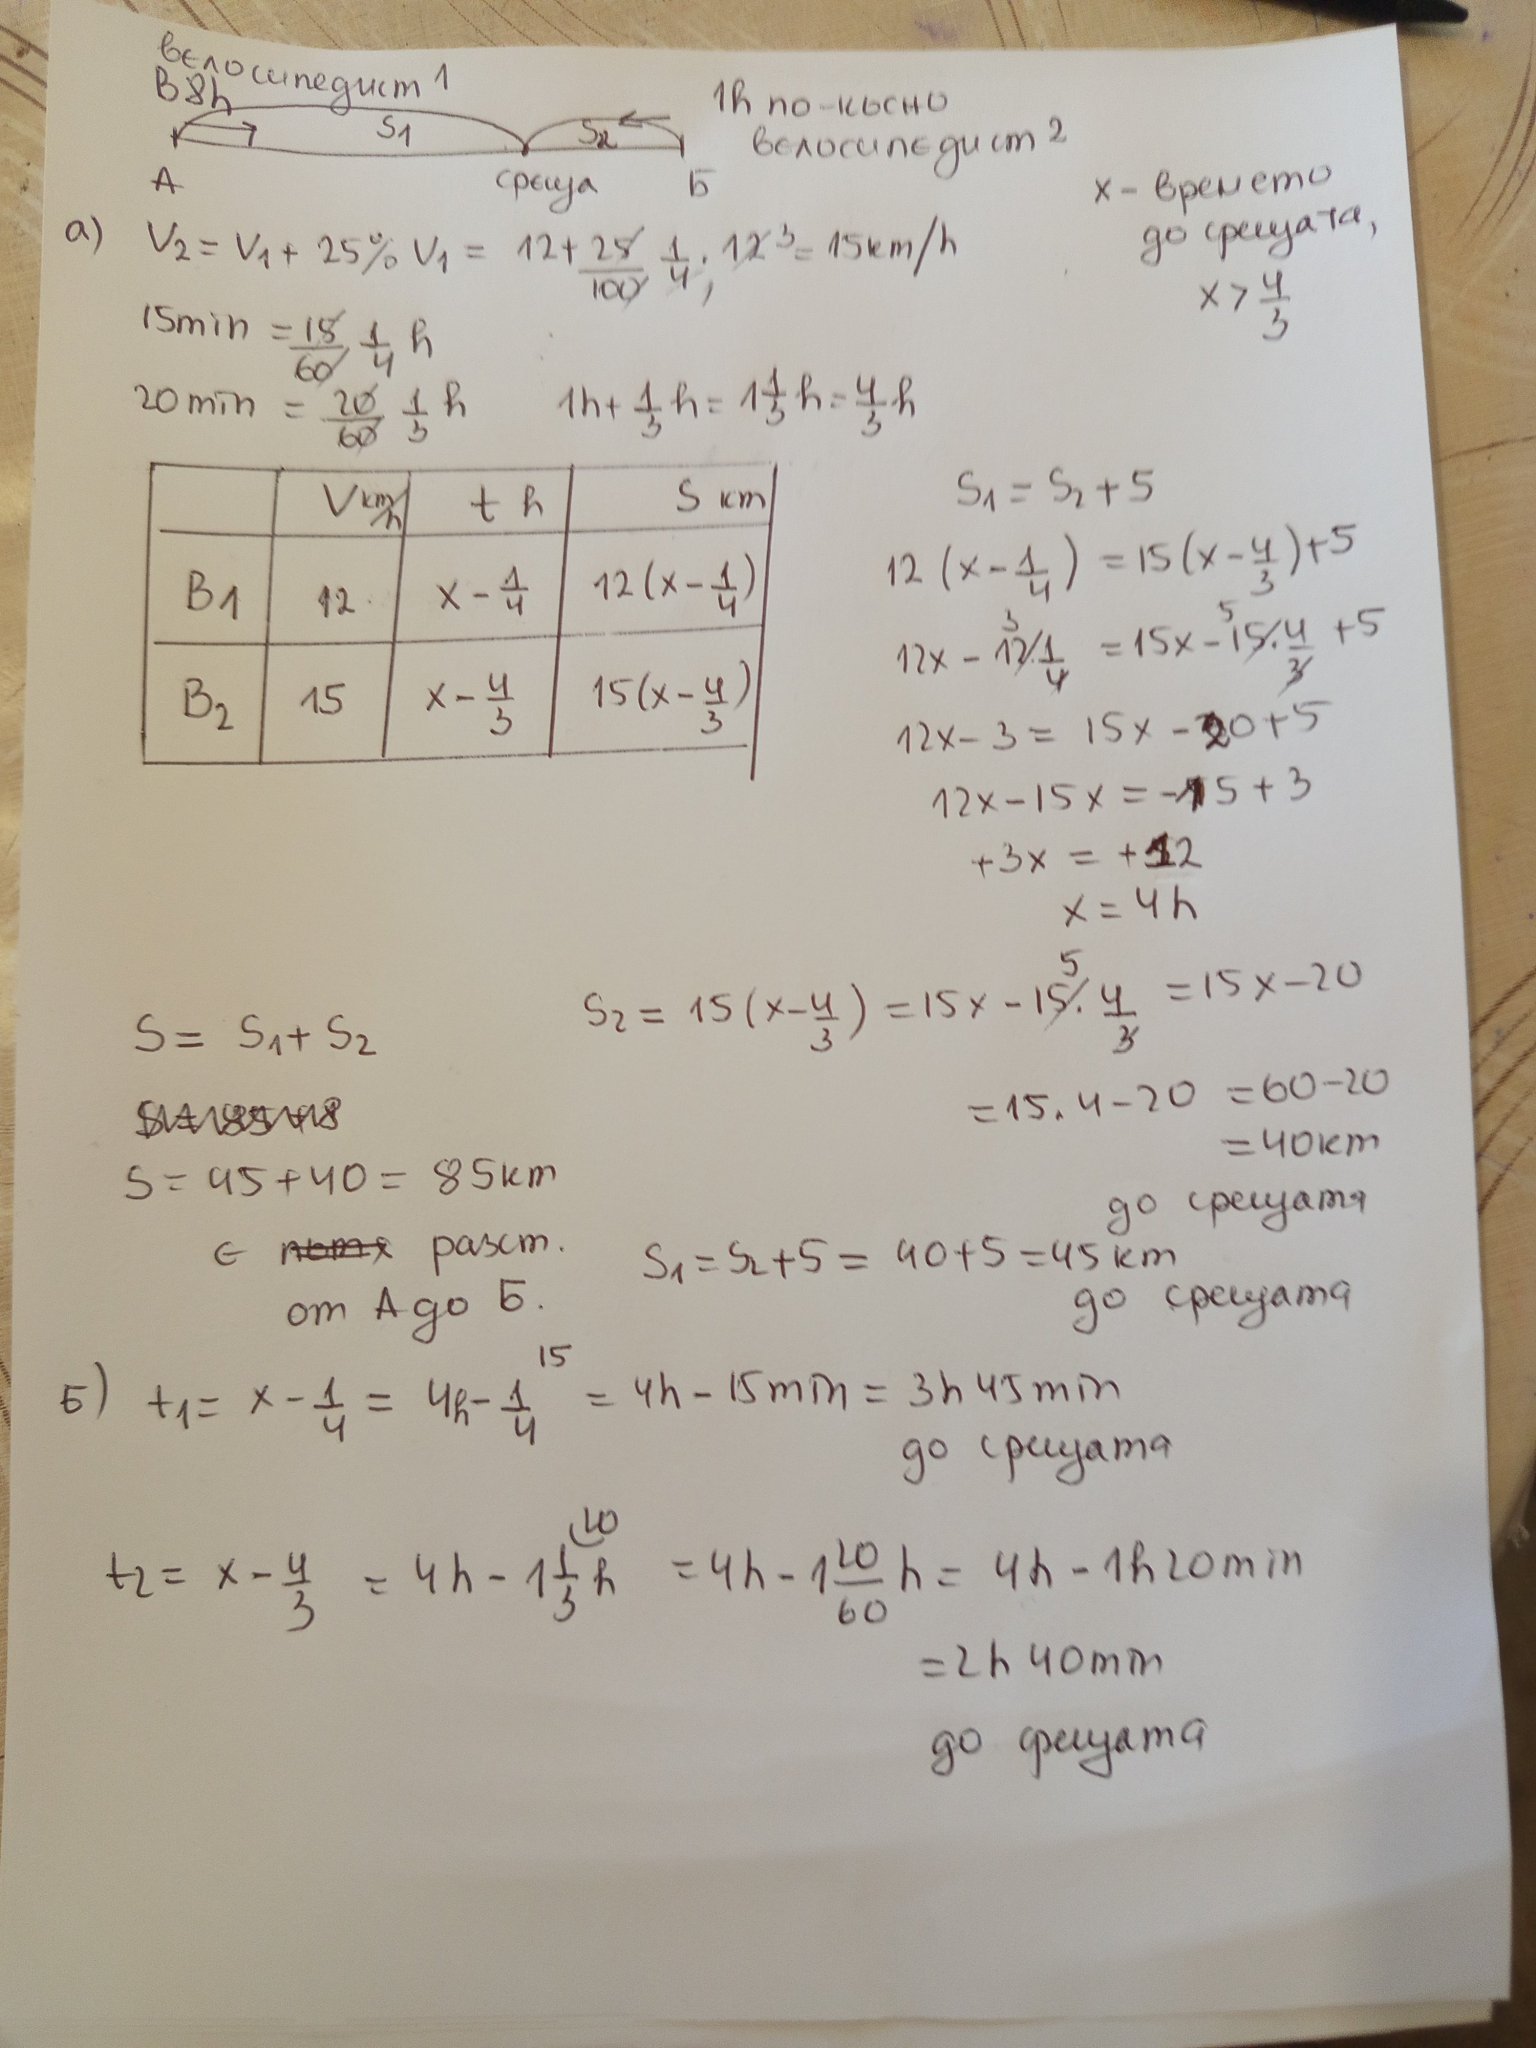 велосипедист 1
В 8h
1h по-късно
S1 S2
велосипедист 2
А среща Б
x - времето
до срещата,
x > 4/3
а) V2 = V1 + 25% V1 = 12 + 25/100 1/4 . 12 3 = 15 km/h
15min = 15/60 1/4 h
20 min = 20/60 1/3 h 1h + 1/3 h = 1 1/3 h = 4/3 h
V km/h t h S km
B1 12 x - 1/4 12(x - 1/4)
B2 15 x - 4/3 15(x - 4/3)
S1 = S2 + 5
12(x - 1/4) = 15(x - 4/3) + 5
12x - 12 3 . 1/4 = 15x - 15 5 . 4/3 + 5
12x - 3 = 15x - 20 + 5
12x - 15x = -15 + 3
+3x = +12
x = 4h
S2 = 15(x - 4/3) = 15x - 15 5 . 4/3 = 15x - 20
= 15.4 - 20 = 60 - 20
= 40 km
до срещата
S1 = S2 + 5 = 40 + 5 = 45 km
до срещата
S = S1 + S2
S = 45 + 40 = 85 km
е пътя разст.
от А до Б.
Б) t1 = x - 1/4 = 4h - 1/4 15 = 4h - 15min = 3h 45min
до срещата
t2 = x - 4/3 = 4h - 1 1/3 20 h = 4h - 1 20/60 h = 4h - 1h 20min
= 2h 40min
до срещата